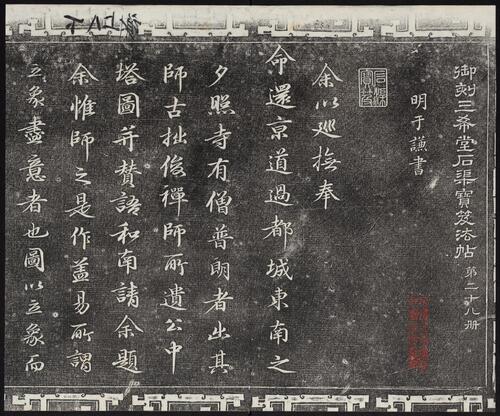 御刻三希堂石渠寶笈法帖 第二十八册
明于謙書
石渠寶笈
余以廵撫奉
命還京道過都城東南之
夕照寺有僧普朗者出其
師古拙俊禪師所遺公中
塔圖并贊語和南請余題
余惟師之是作葢易所謂
立象盡意者也圖以立象而